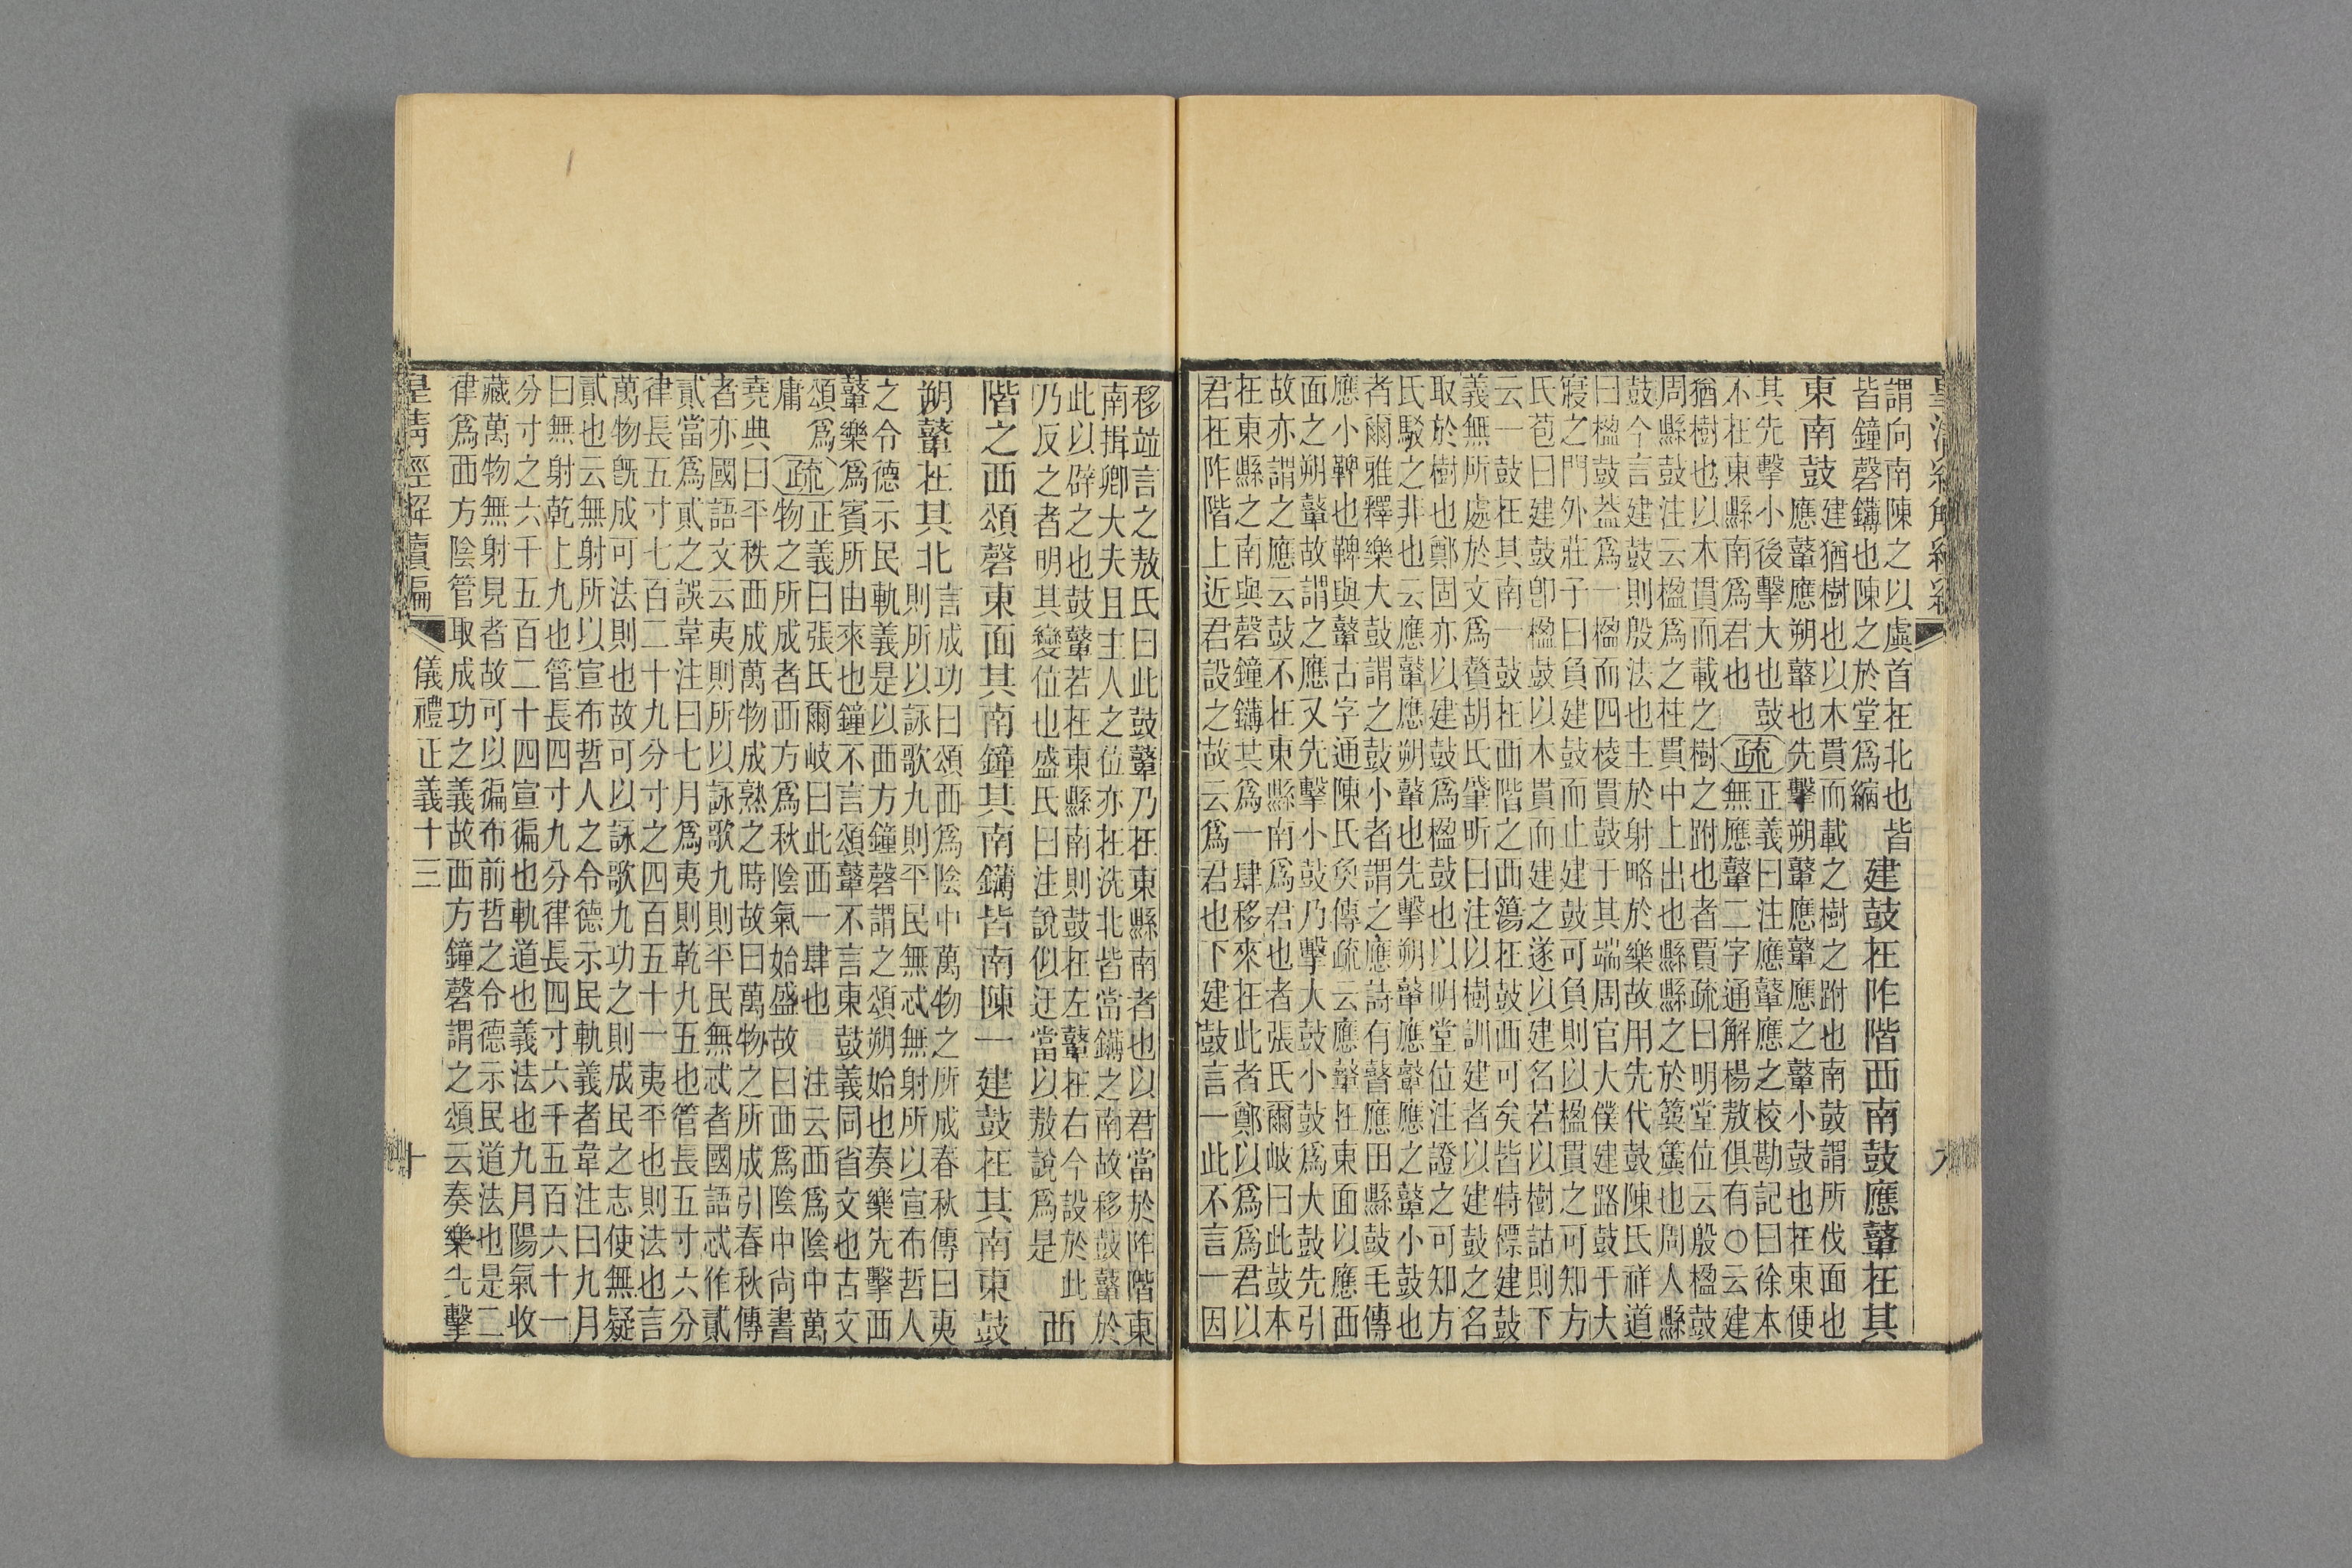 謂向南陳之以虡首在北也 皆
皆鐘磬鑮也陳之於堂爲縮
建鼓在阼階西南鼓應鼙在其
東南鼓
建猶樹也以木貫而載之樹之跗也南鼓謂所伐面也
應鼙應朔鼙也先擊朔鼙應鼙應之鼙小鼓也在東便
其先擊小後擊大也鼓
不在東縣南爲君也
疏
正義曰注應鼙應之校勘記曰徐本
無應鼙二字通解楊敖俱有○云建
猶樹也以木貫而載之樹之跗也者賈疏曰明堂位云殷楹鼓
周縣鼓注云楹爲之柱貫中上出也縣縣之於簨簴也周人縣
鼓今言建鼓則殷法也主於射略於樂故用先代鼓陳氏祥道
曰楹鼓蓋爲一楹而四棱貫鼓于其端周官大僕建路鼓于大
寢之門外莊子曰負建鼓而止建鼓可負則以楹貫之可知方
氏苞曰建鼓卽楹鼓以木貫而建之遂以建名若以樹詁則下
云一鼓在其南一鼓在西階之西簜在鼓西可矣皆特標建鼓
義無所處於文爲贅胡氏肇昕曰注以樹訓建者以建鼓之名
取於樹也鄭固亦以建鼓爲楹鼓也以明堂位注證之可知方
氏駁之非也云應鼙應朔鼙也先擊朔鼙應鼙應之鼙小鼓也
者爾雅釋樂大鼓謂之鼓小者謂之應詩有瞽應田縣鼓毛傳
應小鞞也鞞與鼙古字通陳氏奐傳疏云應鼙在東面以應西
面之朔鼙故謂之應又先擊小鼓乃擊大鼓小鼓爲大鼓先引
故亦謂之應云鼓不在東縣南爲君也者張氏爾岐曰此鼓本
在東縣之南與磬鐘鑮共爲一肆移來在此者鄭以爲爲君以
君在阼階上近君設之故云爲君也下建鼓言一此不言一因
移竝言之敖氏曰此鼓鼙乃在東縣南者也以君當於阼階東
南揖卿大夫且主人之位亦在洗北皆當鑮之南故移鼓鼙於
此以辟之也鼓鼙若在東縣南則鼓在左鼙在右今設於此
乃反之者明其變位也盛氏曰注說似迂當以敖說爲是
西
階之西頌磬東面其南鐘其南鑮皆南陳一建鼓在其南東鼓
朔鼙在其北
言成功曰頌西爲陰中萬物之所成春秋傳曰夷
則所以詠歌九則平民無忒無射所以宣布哲人
之令德示民軌義是以西方鐘磬謂之頌朔始也奏樂先擊西
鼙樂爲賓所由來也鐘不言頌鼙不言東鼓義同省文也古文
頌爲
庸
疏
正義曰張氏爾岐曰此西一肆也 注云西爲陰中萬
物之所成者西方爲秋陰氣始盛故曰西爲陰中尚書
堯典曰平秩西成萬物成熟之時故曰萬物之所成引春秋傳
者亦國語文云夷則所以詠歌九則平民無忒者國語忒作貳
貳當爲貣之誤韋注曰七月爲夷則乾九五也管長五寸六分
律長五寸七百二十九分寸之四百五十一夷平也則法也言
萬物旣成可法則也故可以詠歌九功之則成民之志使無疑
貳也云無射所以宣布哲人之令德示民軌義者韋注曰九月
曰無射乾上九也管長四寸九分律長四寸六千五百六十一
分寸之六千五百二十四宣徧也軌道也義法也九月陽氣收
藏萬物無射見者故可以徧布前哲之令德示民道法也是二
律爲西方陰管取成功之義故西方鐘磬謂之頌云奏樂先擊
皇清經解續編 儀禮正義十三 十